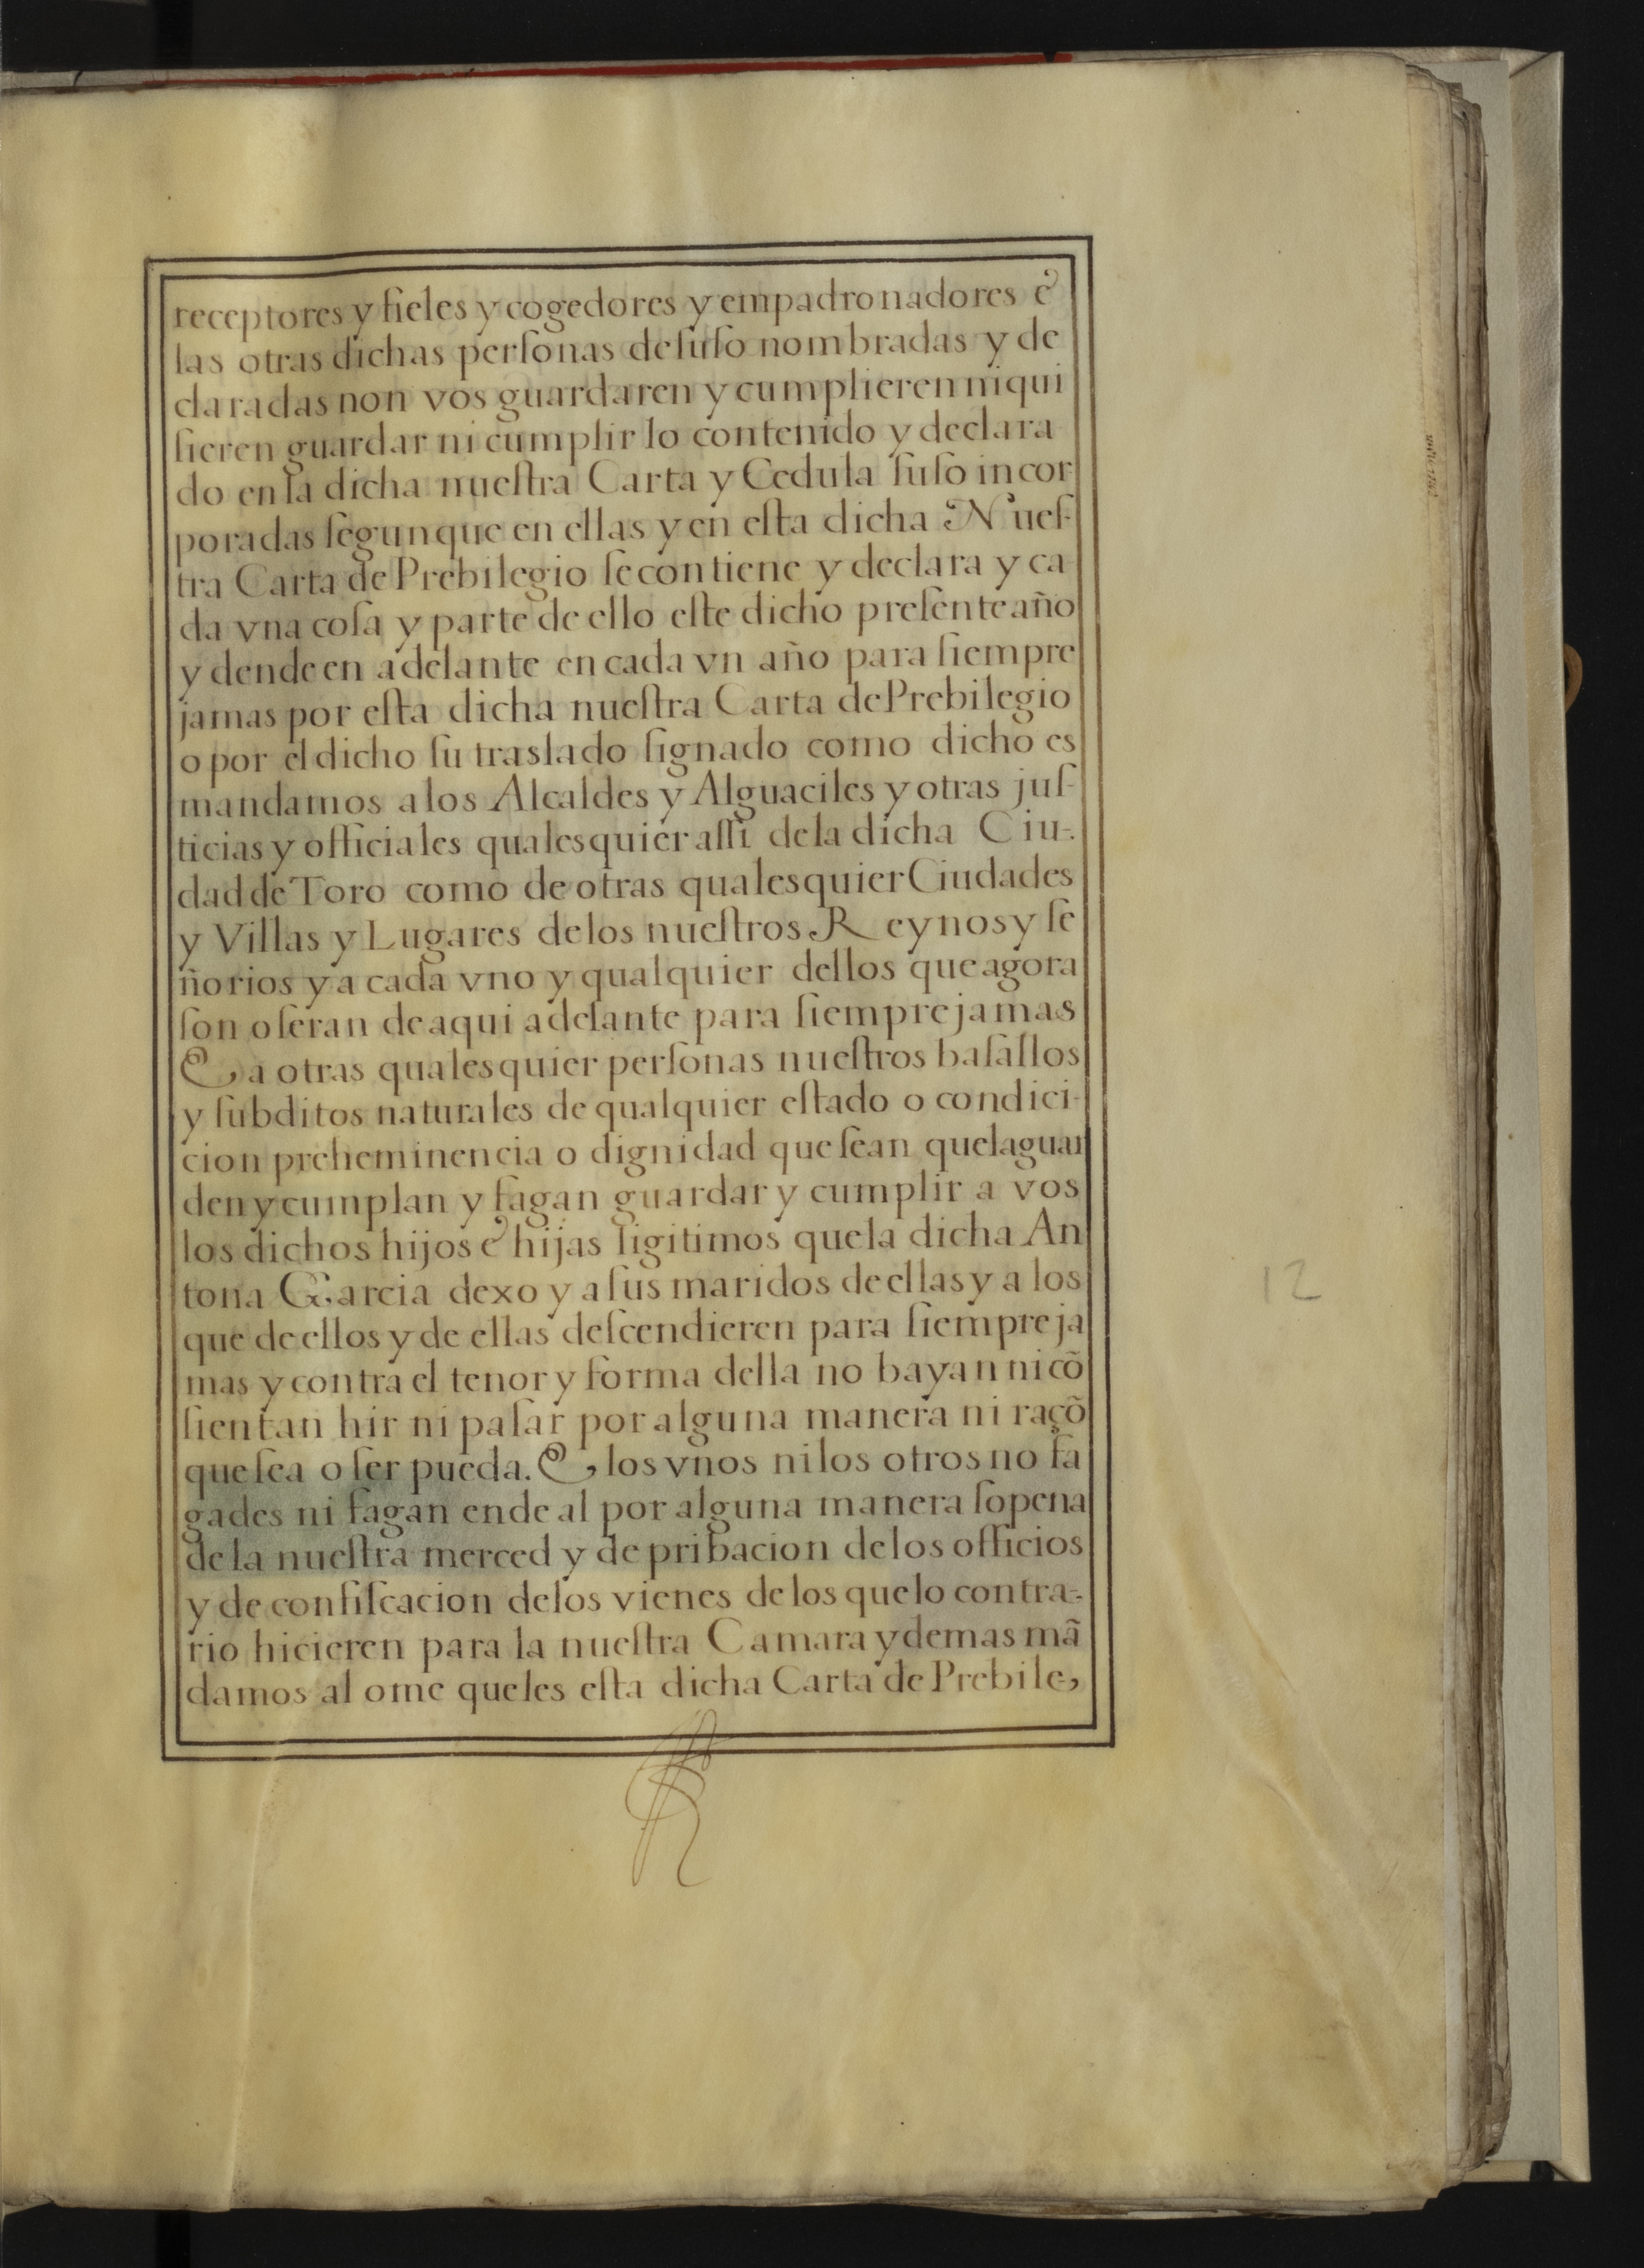 receptores y fieles y cogedores y empadronadores é
las otras dichas perſonas deſuſo nombradas y de
claradas non vos guardaren y cumplieren ni qui
ſieren guardar ni cumplir lo contenido y declara
do en la dicha nueſtra Carta y Cedula ſuſo incor
poradas ſegun que en ellas y en eſta dicha Nueſ-
tra Carta de Prebilegio ſe contiene y declara y ca
da vna coſa y parte de ello eſte dicho preſente año
y dende en adelante en cada vn año para ſiempre
jamas por eſta dicha nueſtra Carta de Prebilegio
o por el dicho ſu traslado ſignado como dicho es
mandamos a los Alcaldes y Alguaciles y otras juſ-
ticias y officiales qualesquier aſſi de la dicha Ciu-.
dad de Toro como de otras qualesquier Ciudades
y Villas y Lugares de los nueſtros Reynos y ſe
ñorios y a cada vno y qualquier dellos que agora
ſon o ſeran de aqui adelante para ſiempre jamas
E a otras qualesquier perſonas nueſtros baſallos
y ſubditos naturales de qualquier eſtado o condici-
cion preheminencia o dignidad que ſean que la guar
den y cumplan y fagan guardar y cumplir a vos
los dichos hijos é hijas ligitimos que la dicha An
tona Garcia dexo y a ſus maridos de ellas y a los
que de ellos y de ellas deſcendieren para ſiempre ja
mas y contra el tenor y forma della no bayan ni cõ
ſientan hir ni paſar por alguna manera ni raçõ
que ſea o ſer pueda. E los vnos ni los otros no fa
gades ni fagan ende al por alguna manera ſopena
de la nueſtra merced y de pribacion de los officios
y de confiſcacion de los vienes de los que lo contra-.
rio hicieren para la nueſtra Camara y demas mã
damos al ome que les eſta dicha Carta de Prebile,
12